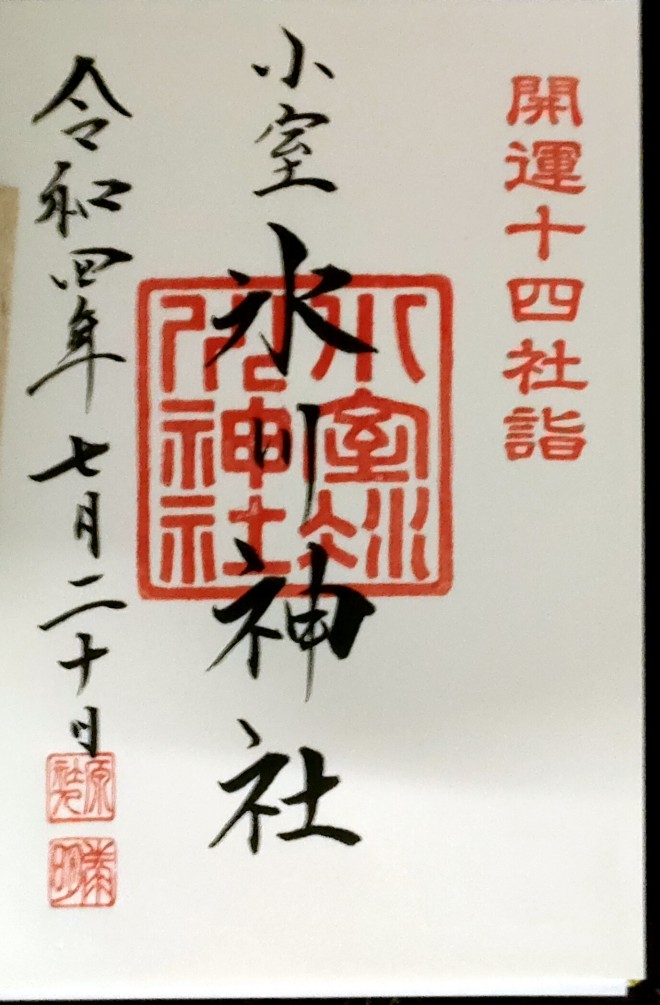 開運十四社詣
小室
氷川神社
小室氷
川神社
令和四年七月二十日